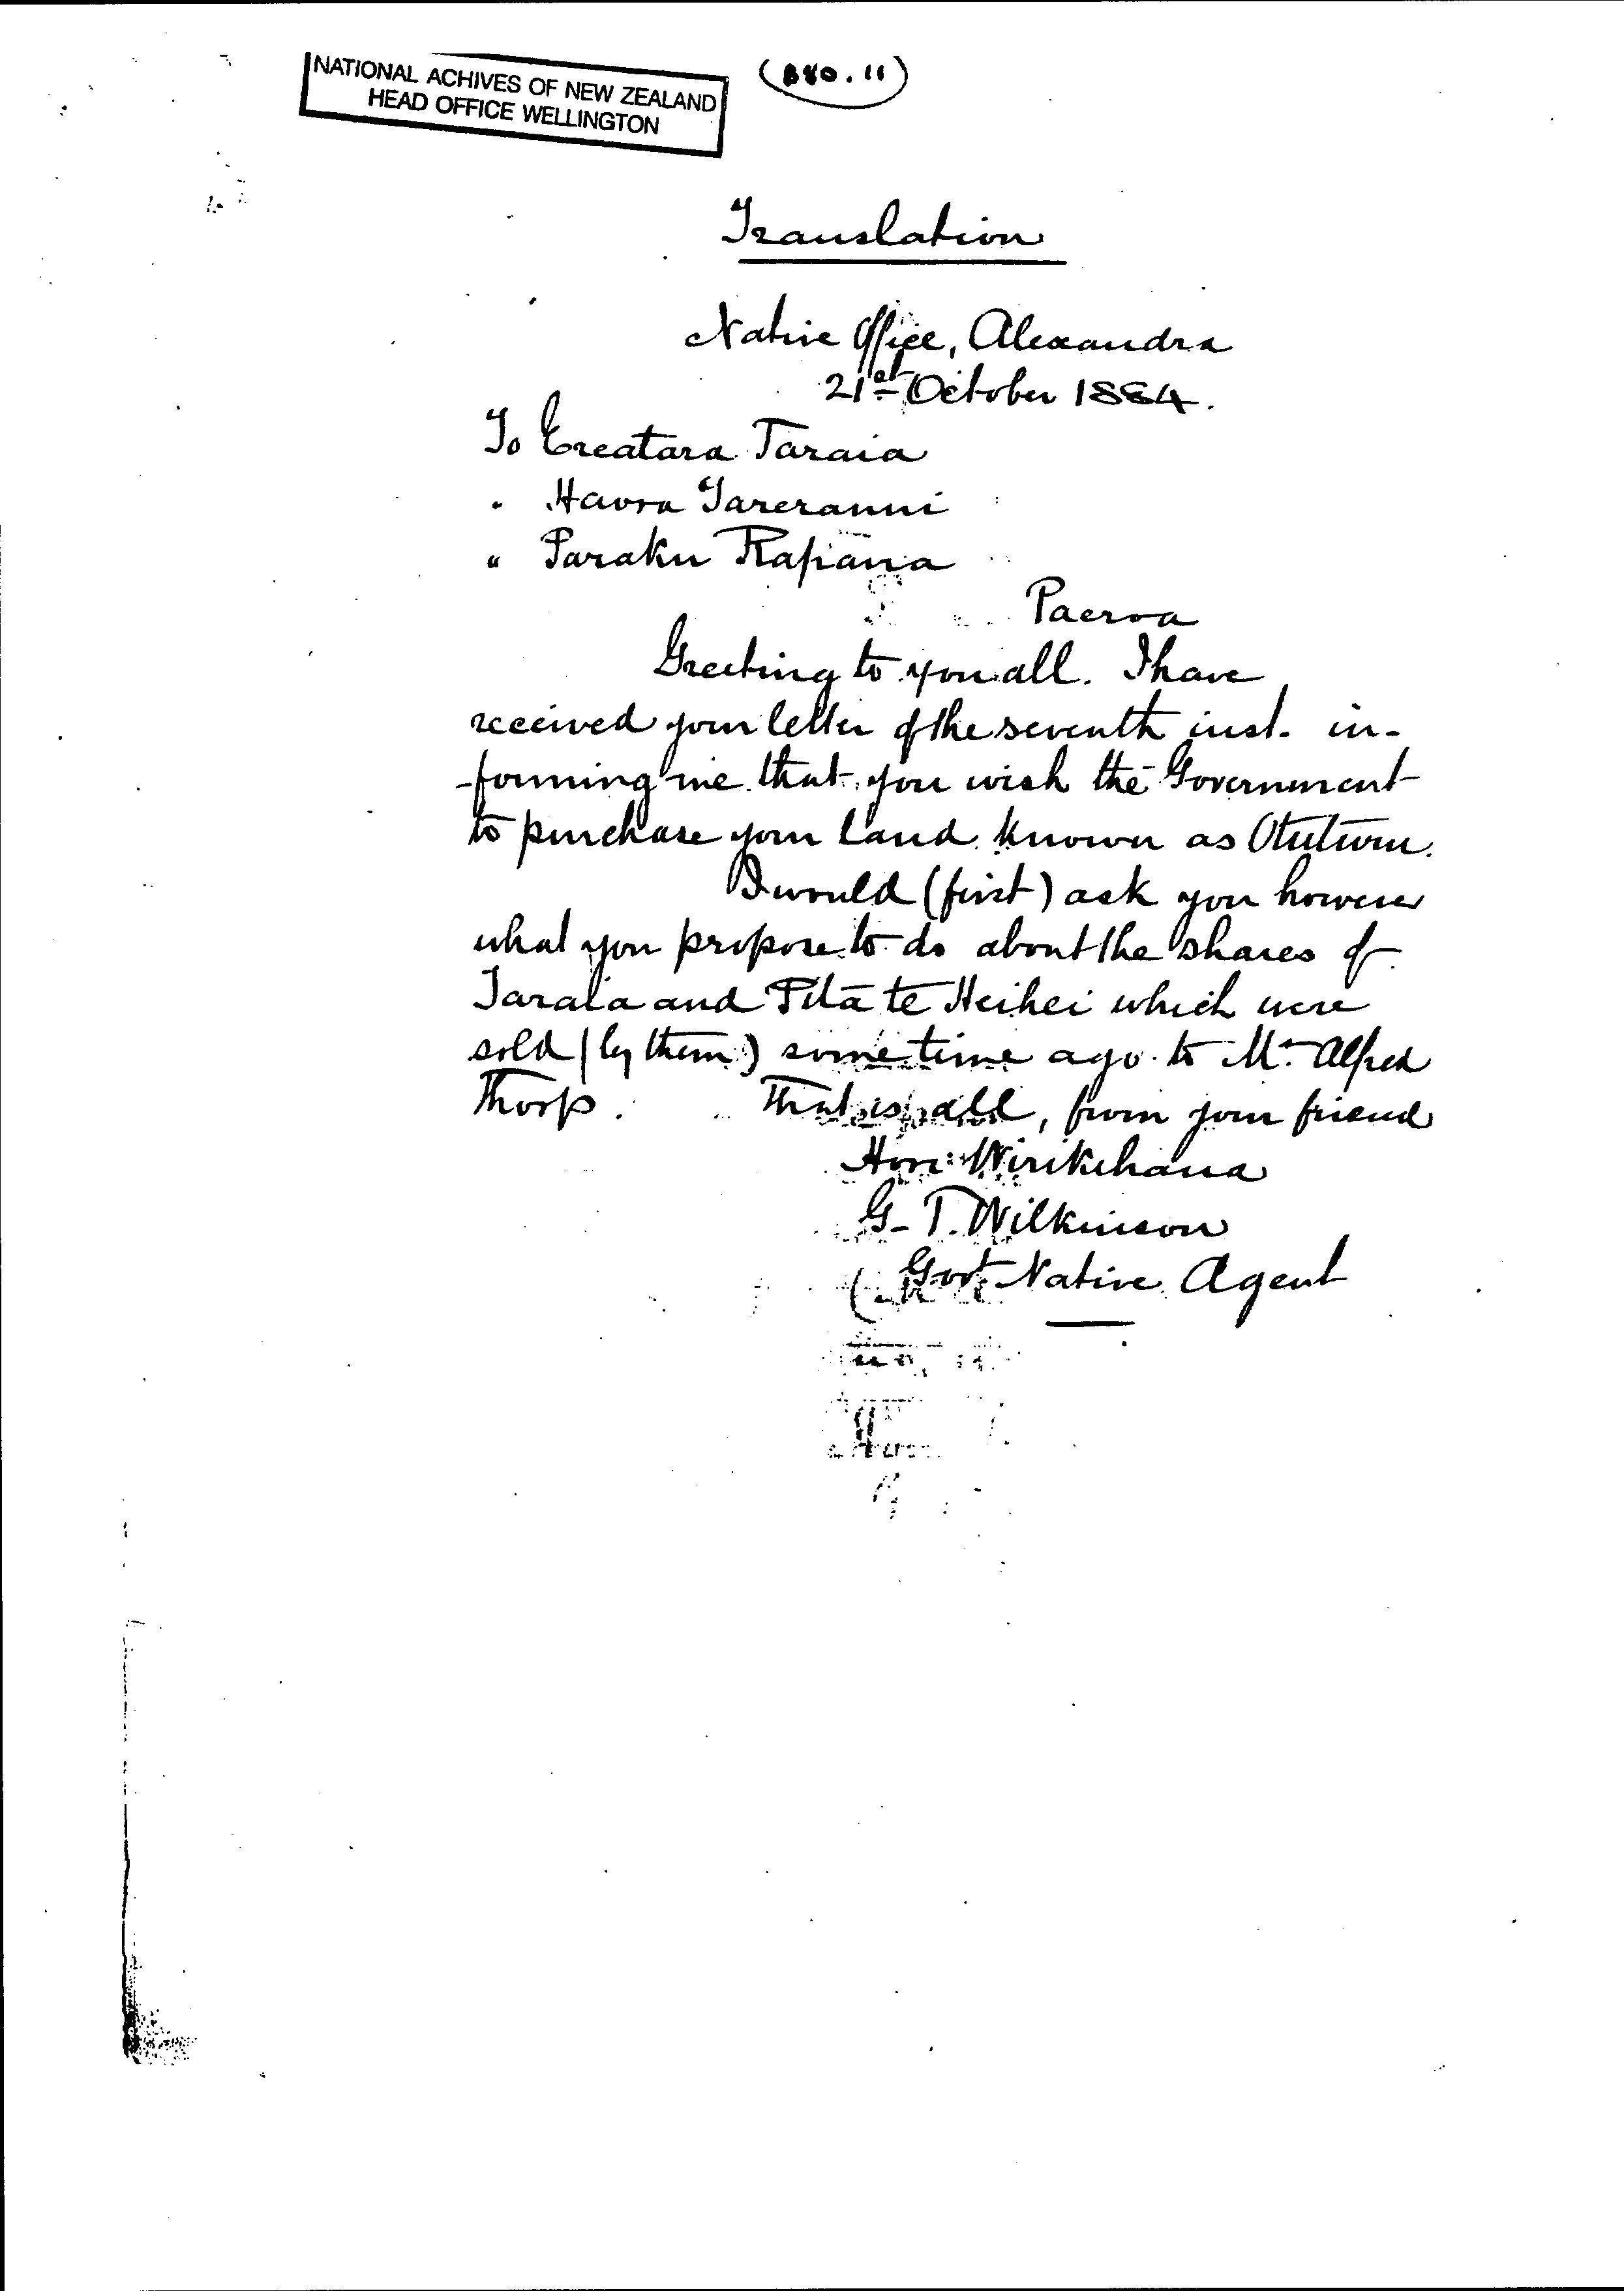 NATIONAL ACHIVES OF NEW ZEALAND
HEAD OFFICE WELLINGTON
(880.11)
Translation
Native Office, Alexandra
21st October 1884.
To Ereatara Taraia
" Haora Tareranui
" Paraku Rapana
Paeroa
Greeting to you all. I have
received your letter of the seventh inst. in-
-forming me that you wish the Government
to purchase your land known as Otuturu.
I would (first) ask you however
what you propose to do about the shares of
Taraia and Pita te Heihei which were
sold (by them) some time ago to Mr. Alfred
Thorp. That is all, from your friend
Hori Wirikihana
G. T. Wilkinson
(Govt. Native Agent